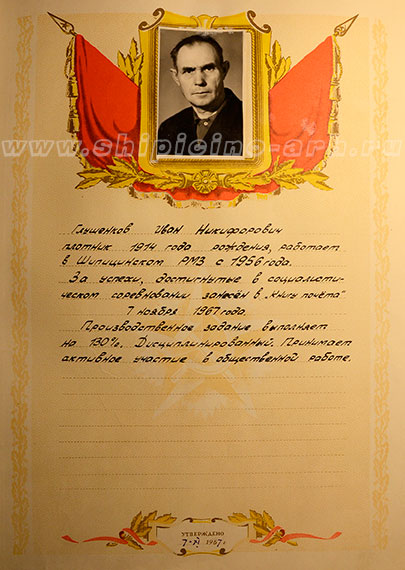 www.shipicino-arz.ru
Глушенков Иван Никифорович
плотник 1914 года рождения, работает
в Шипицинском РМЗ с 1956 года.
За успехи, достигнутые в социалисти-
ческом соревновании занесён в „Книгу почёта"
7 ноября 1967 года.
Производственное задание выполняет
на 130%. Дисциплинированный. Принимает
активное участие в общественной работе.
УТВЕРЖДЕНО
7-XI 1967 г.